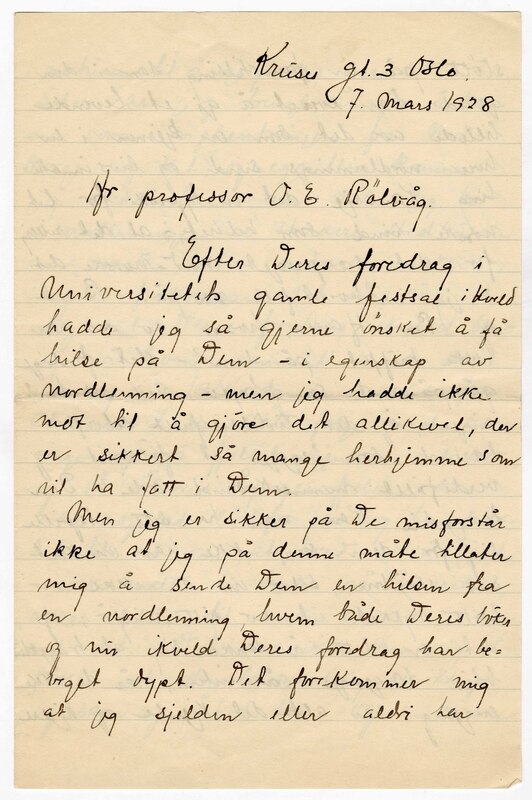 Kruses gt. 3 Oslo.
7. mars 1928
Hr. professor O. E. Rölvåg.
Efter Deres foredrag i
Universitetets gamle festsal ikveld
hadde jeg så gjerne önsket å få
hilse på Dem - i egenskap av
nordlenning - men jeg hadde ikke
mot til å gjöre det allikevel, der
er sikkert så mange herhjemme som
vil ha fatt i Dem.
Men jeg er sikker på De misforstår
ikke at jeg på denne måte tillater
mig å sende Dem en hilsen fra
en nordlenning, hvem både Deres böker
og nu ikveld Deres foredrag har be=
veget dypt. Det forekommer mig
at jeg sjelden eller aldri har